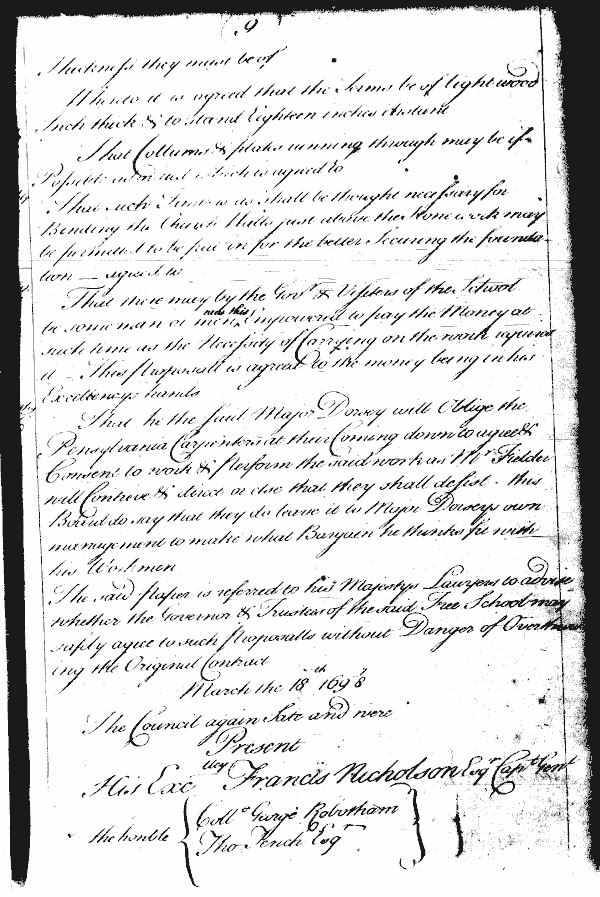 9
thickness they must be of
Whereto it is agreed that the Sorms be of light wood
Inch thick & to stand Eighteen inches distant
That Collums & plates running through may be if
Possible which is agreed to
That such Sorms as shall be thought necessary for
Binding the Church Walls just above the Stone work may
be permitted to be put in for the better Securing the founda-
tion — agreed to
That there may by the Govr & Visitors of the School
be some man or men, Empowered to pay the Money at
such time as the Necessity of Carrying on the work requires
it — This Proposall is agreed to the money being in his
Excellencys hands
That he the said Major Dorsey will Oblige the
Pensylvania Carpenters at their Coming down to agree &
Consent to work & Perform the said work as Mr Fielder
will Contrive & direct or else that they shall desist. this
Board do say that they do leave it to Major Dorseys own
management to make what Bargain he thinks fit with
his Workmen
The said Paper is referred to his Majestys Lawyers to advise
whether the Governor & Trustees of the said Free School may
safely agee to such Proposalls without Danger of Overthrow
ing the Original Contract
March the 18th 169 7/8
The Council again Sate and were
Present
His Excllcy Francis Nicholson Esqr Capt Genl
the honble
Collo George Robotham
Tho Tench Esqr